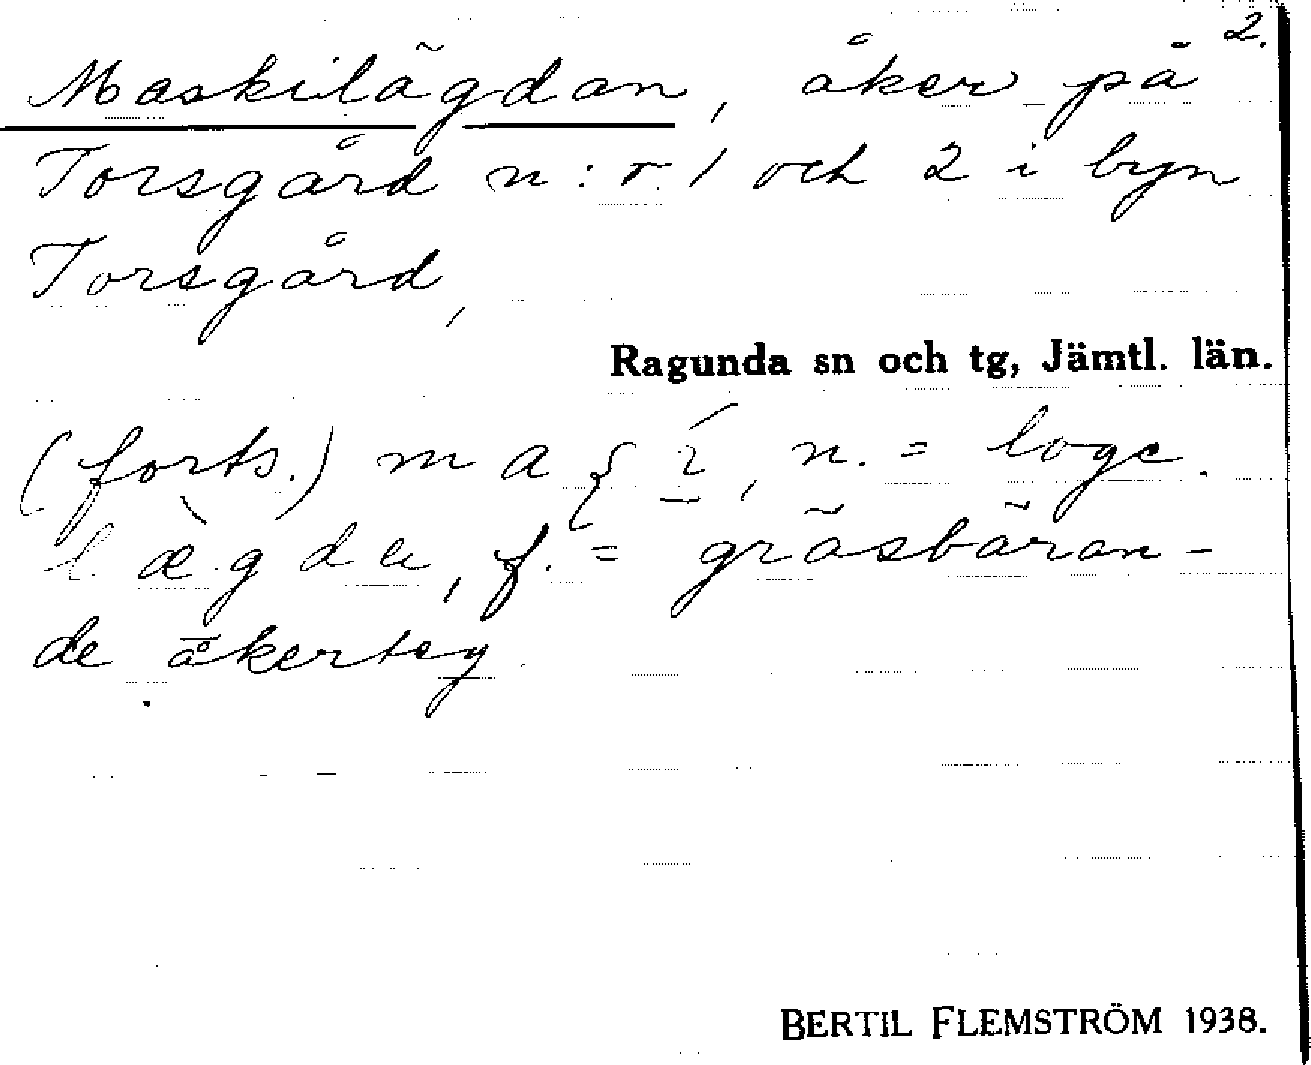 2.
Maskilägdan, åker på
Torsgård n:r 1 och 2 i byn
Torsgård,
Ragunda sn och tg, Jämtl. län.
(forts.) n. = loge.
f. = gräsbäran-
de åkerteg
BERTIL FLEMSTRÖM 1938.